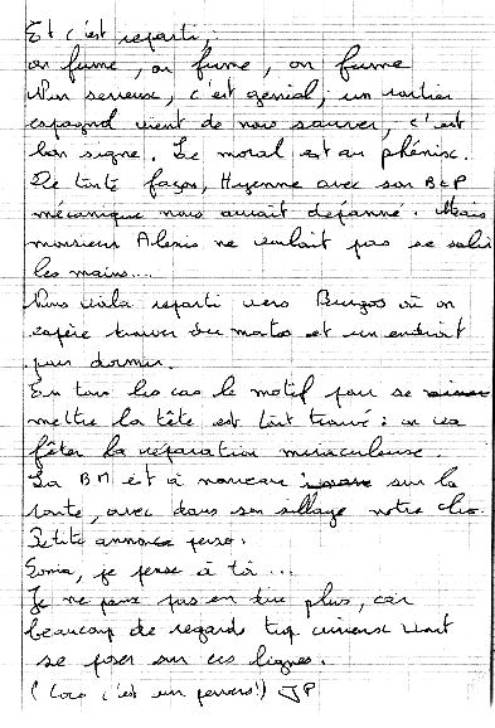 Et c'est reparti,
on fume, on fume, on fume
Non serieux, c'est genial, un routier
espagnol vient de nous sauver, c'est
bon signe. Le moral est au phénix.
De toute façon, Hyenne avec son BEP
mécanique nous aurait dépanné. Mais
monsieur Alexis ne voulait pas se salir
les mains....
Nous voila reparti vers Burgos où on
espère trouver du matos et un endroit
pour dormir.
En tous les cas le motif pour se
mettre la tête est tout trouvé : on va
fêter la réparation miraculeuse.
La BM est à nouveau sur la
route, avec dans son sillage notre clio.
Petite annonce perso.
Sonia, je pense à toi ...
Je ne peux pas en dire plus, car
beaucoup de regards trop curieux vont
se poser sur ces lignes.
(Coco c'est un pervers!) JP